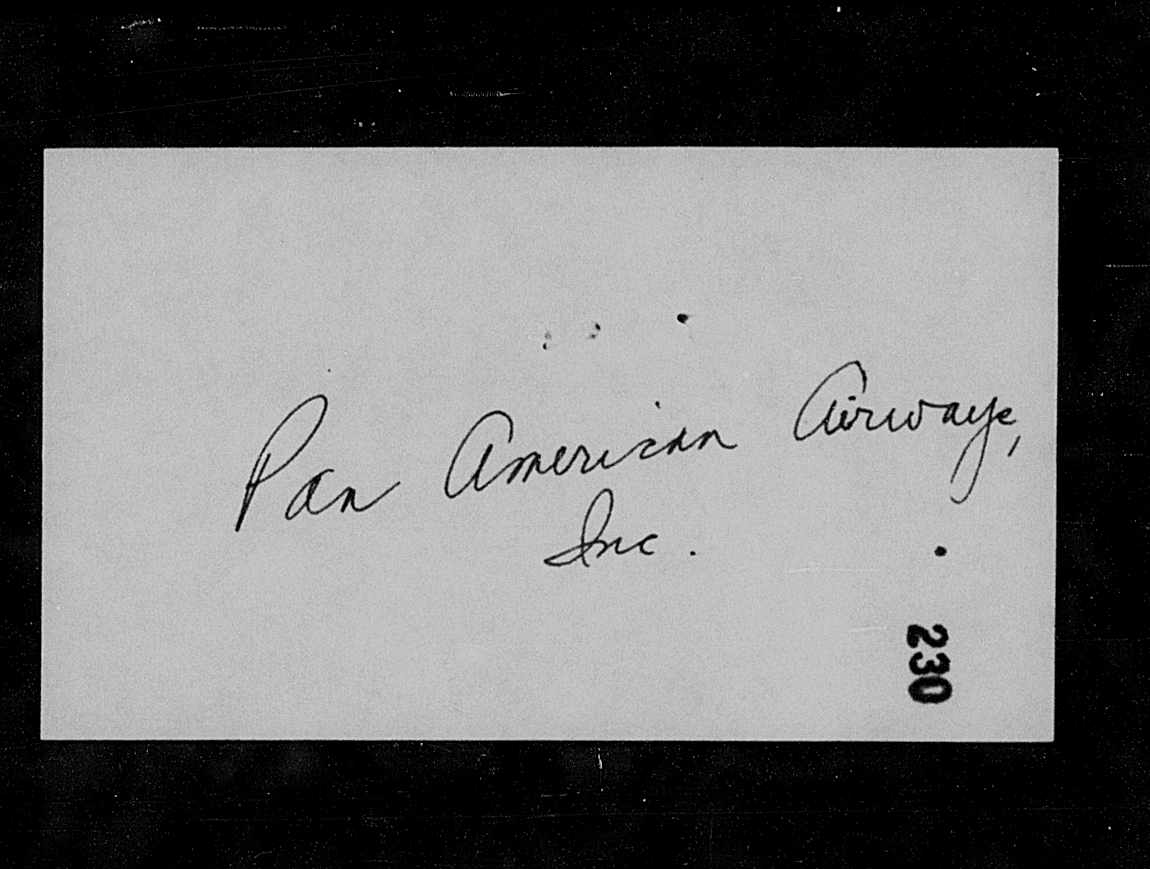 Pan American Airways,
Inc.
230